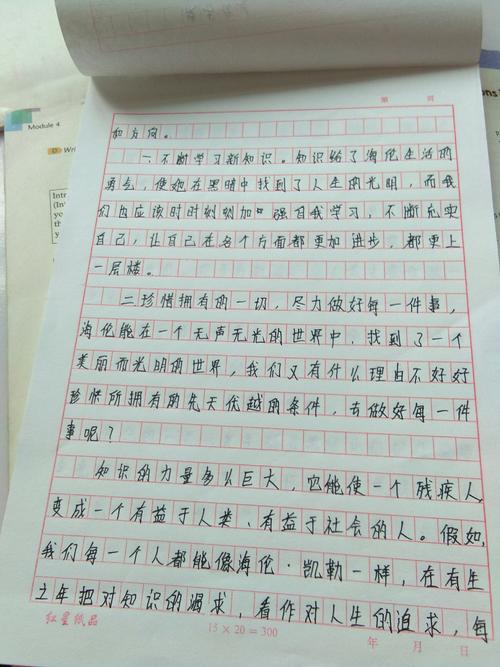 第 页
Module 4
和方向。
一.不断学习新知识。知识给了海伦生活的
勇气,使她在黑暗中找到了人生的光明,而我
们也应该时时刻刻加强自我学习,不断充实
自己,让自己在各个方面都更加进步,都更上
一层楼。
二.珍惜拥有的一切,尽力做好每一件事,
海伦能在一个无声无光的世界中,找到了一个
美丽而光明的世界,我们又有什么理由不好好
珍惜所拥有的先天优越的条件,去做好每一件
事呢?
知识的力量多么巨大,它能使一个残疾人,
变成一个有益于人类、有益于社会的人。假如,
我们每一个人都能像海伦·凯勒一样,在有生
之年把对知识的渴求,看作对人生的追求,每
红星纸品
15×20=300
年 月 日